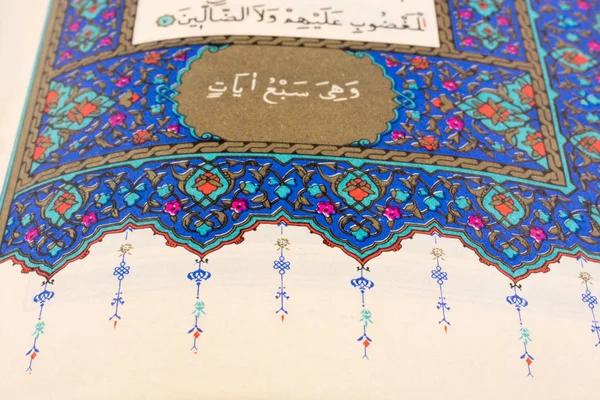 الْمَغْضُوبِ عَلَيْهِمْ وَلَا الضَّالِّينَ
وَهِيَ سَبْعُ اٰيَاتٍ